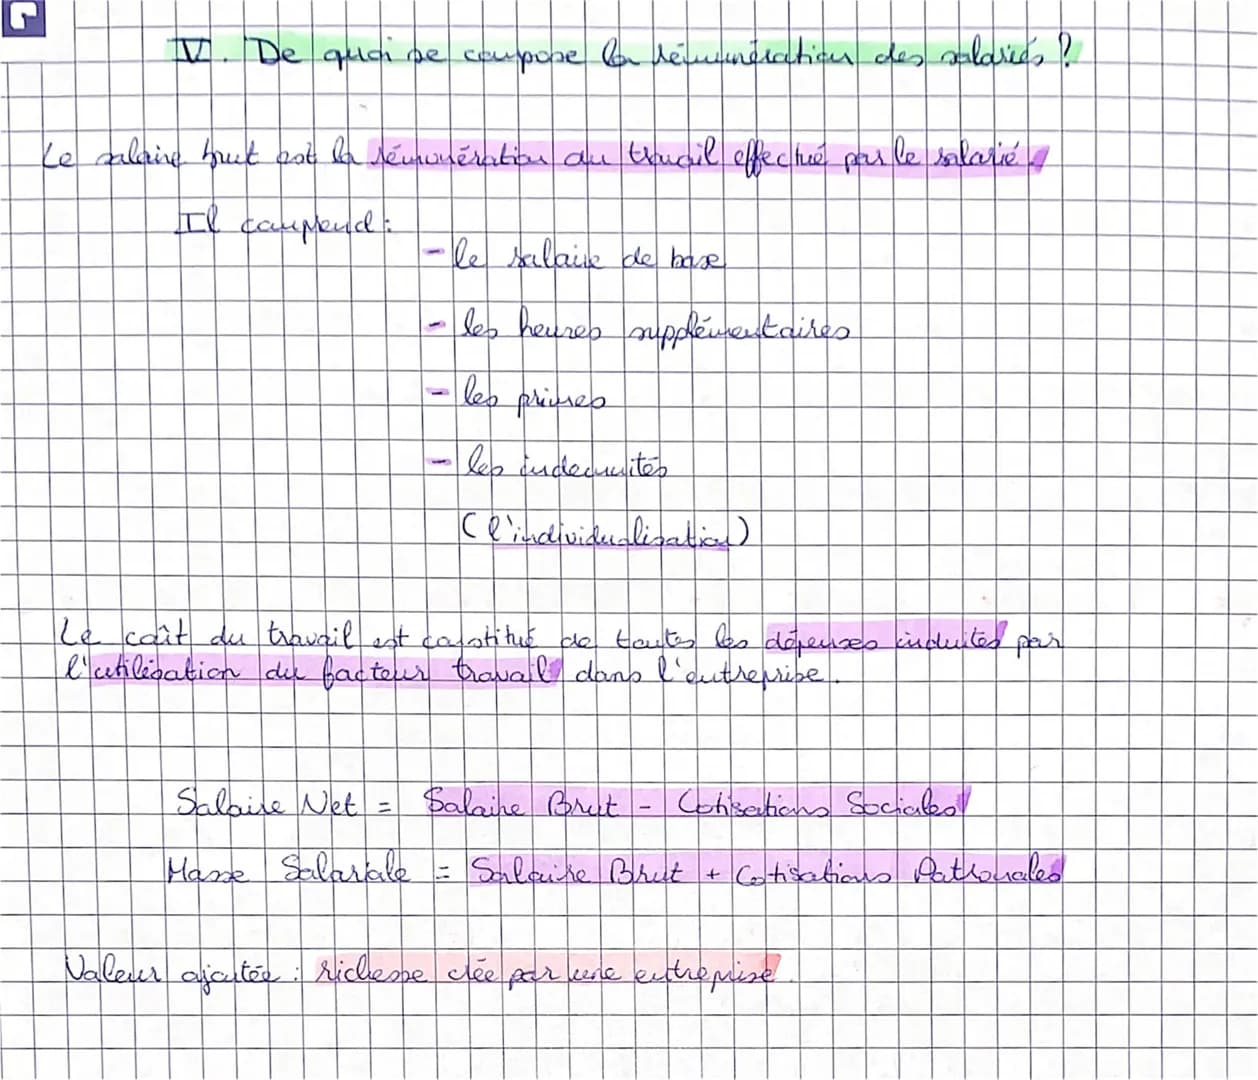 V. De quoi se compose la rémunération des salariés ?
Le salaire brut est la rémunération du travail effectué par le salarié.
Il comprend :
- le salaire de base
- les heures supplémentaires
- les primes
- les indemnités
(l'individualisation)
Le coût du travail est constitué de toutes les dépenses induites par
l'utilisation du facteur travail dans l'entreprise.
Salaire Net = Salaire Brut - Cotisations Sociales
Masse Salariale = Salaire Brut + Cotisations Patronales
Valeur ajoutée : richesse créée par une entreprise.